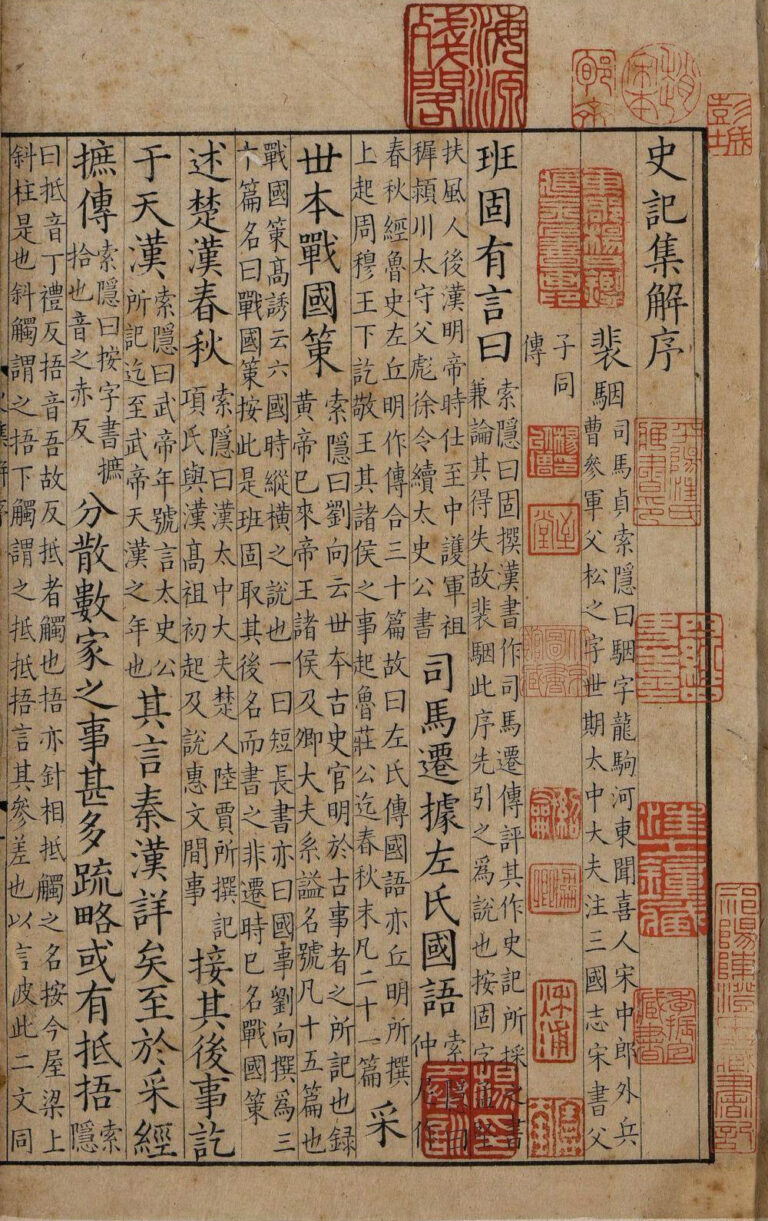 史記集解序
裴駰
司馬貞索隱曰駰字龍駒河東聞喜人宋中郎外兵
曹參軍父松之字世期太中大夫注三國志宋書父
子同
傳
班固有言曰
索隱曰固撰漢書作司馬遷傳評其作史記所採之書
兼論其得失故裴駰此序先引之爲說也按固字孟堅
扶風人後漢明帝時仕至中護軍祖
穉潁川太守父彪徐令續太史公書
司馬遷據左氏國語
索隱曰
仲尼作
春秋經魯史左丘明作傳合三十篇故曰左氏傳國語亦丘明所撰
上起周穆王下訖敬王其諸侯之事起魯莊公迄春秋末凡二十一篇
采
世本戰國策
索隱曰劉向云世本古史官明於古事者之所記也録
黃帝已來帝王諸侯及卿大夫系謚名號凡十五篇也
戰國策髙誘云六國時縱橫之說也一曰短長書亦曰國事劉向撰爲三
篇名曰戰國策按此是班固取其後名而書之非遷時已名戰國策
述楚漢春秋
索隱曰漢太中大夫楚人陸賈所撰記
項氏與漢髙祖初起及說惠文間事
接其後事訖
于天漢
索隱曰武帝年號言太史公
所記迄至武帝天漢之年也
其言秦漢詳矣至於采經
摭傳
索隱曰按字書摭
拾也音之赤反
分散數家之事甚多疏略或有抵捂
索
隱
曰抵音丁禮反捂音吾故反抵者觸也捂亦針相抵觸之名按今屋梁上
斜柱是也斜觸謂之捂下觸謂之抵抵捂言其參差也以言彼此二文同
海源殘閣
彭城
汪士鐘藏
祁陽陳澄中藏書記